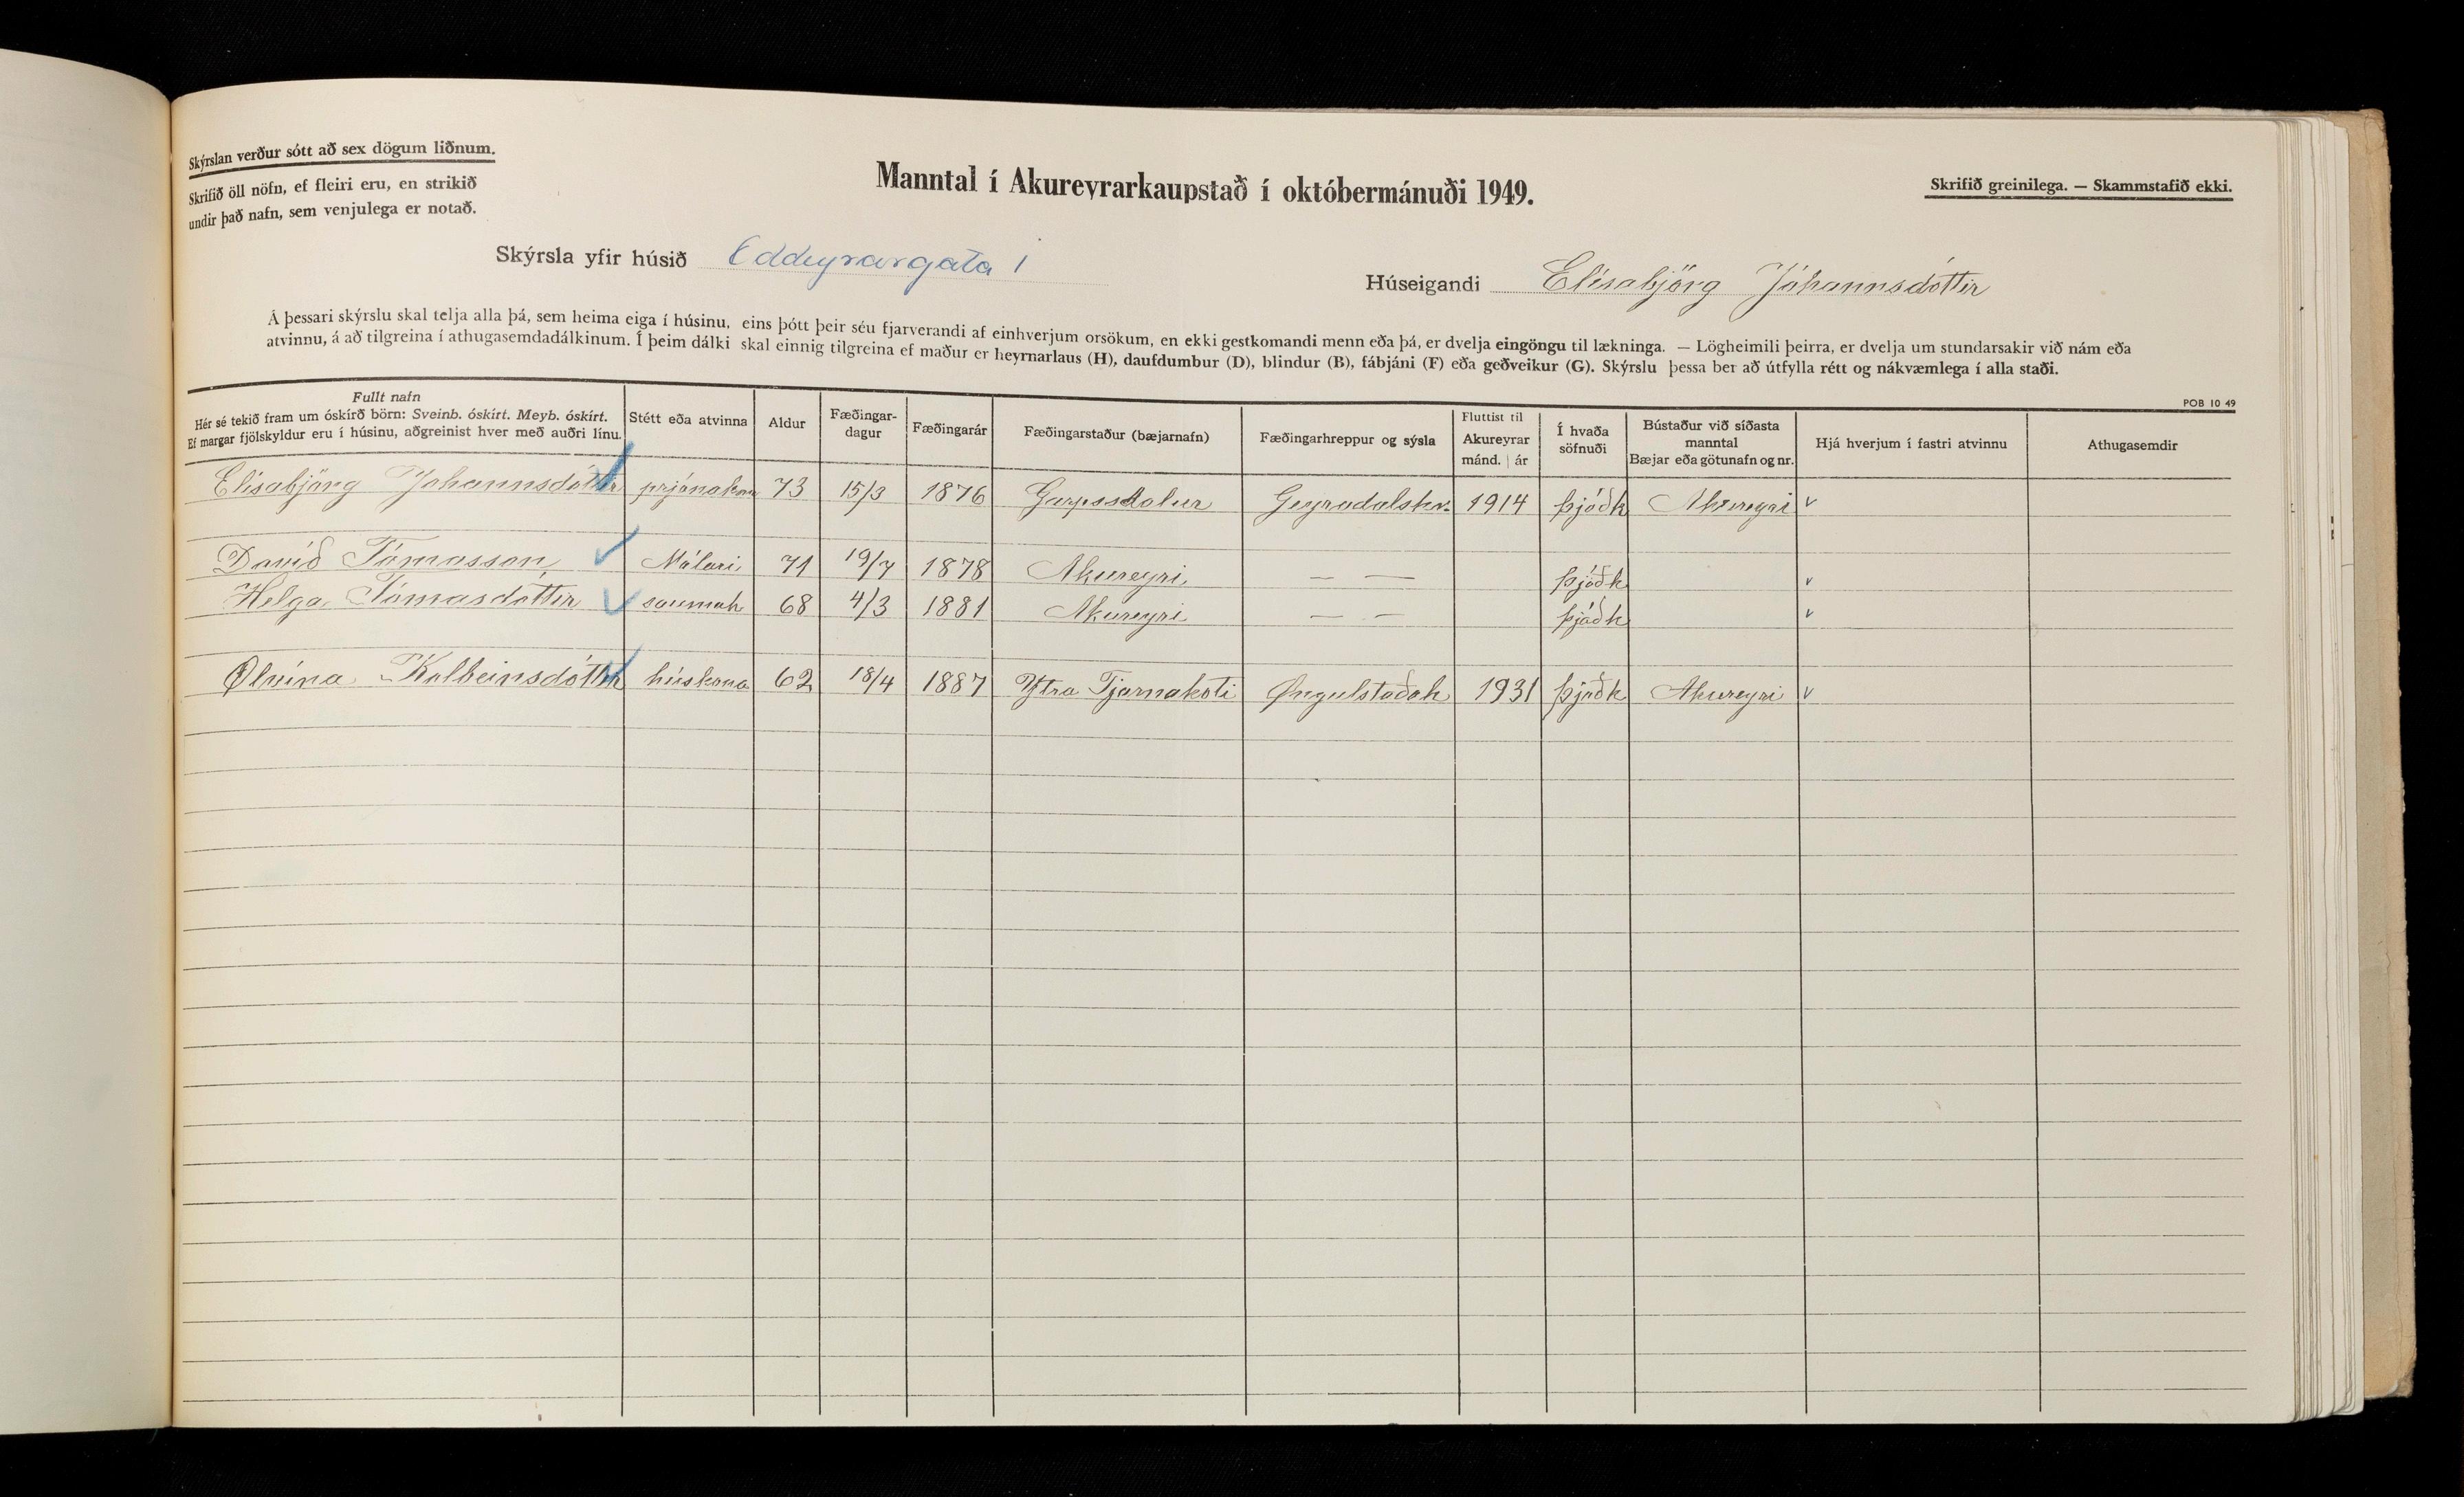 Skýrslan verður sótt að sex dögum liðnum.
Skrifið öll nöfn, ef fleiri eru, en strikið
undir það nafn, sem venjulega er notað.
Manntal í Akureyrarkaupstað í októbermánuði 1949.
Skrifið greinilega. — Skammstafið ekki.
Skýrsla yfir húsið Eddeyrargata 1
Húseigandi Elísabjörg Jóhannsdóttir
Á þessari skýrslu skal telja alla þá, sem heima eiga í húsinu, eins þótt þeir séu fjarverandi af einhverjum orsökum, en ekki gestkomandi menn eða þá, er dvelja eingöngu til lækninga. — Lögheimili þeirra, er dvelja um stundarsakir við nám eða
atvinnu, á að tilgreina í athugasemdadálkinum. Í þeim dálki skal einnig tilgreina ef maður er heyrnarlaus (H), daufdumbur (D), blindur (B), fábjáni (F) eða geðveikur (G). Skýrslu þessa ber að útfylla rétt og nákvæmlega í alla staði.
POB 10 49
Fullt nafn
Hér sé tekið fram um óskírð börn: Sveinb. óskírt. Meyb. óskírt.
Ef margar fjölskyldur eru í húsinu, aðgreinist hver með auðri línu.
Stétt eða atvinna
Aldur
Fæðingar-
dagur
Fæðingarár
Fæðingarstaður (bæjarnafn)
Fæðingarhreppur og sýsla
Fluttist til
Akureyrar
mánd. | ár
Í hvaða
söfnuði
Bústaður við síðasta
manntal
Bæjar eða götunafn og nr.
Hjá hverjum í fastri atvinnu
Athugasemdir
Elísabjörg Jóhannsdóttir prjónakona 73 15/3 1876 Garpsdalur Geyradalshr. 1914 þjóðk Akureyri v
Davíð Tómasson Málari 71 19/7 1878 Akureyri — — þjóðk v
Helga Tómasdóttir saumak 68 4/3 1881 Akureyri — — þjóðk v
Ølvína Kolbeinsdóttir húskona 62 18/4 1887 Ytra Tjarnakoti Øngulstaðah 1931 þjóðk Akureyri v